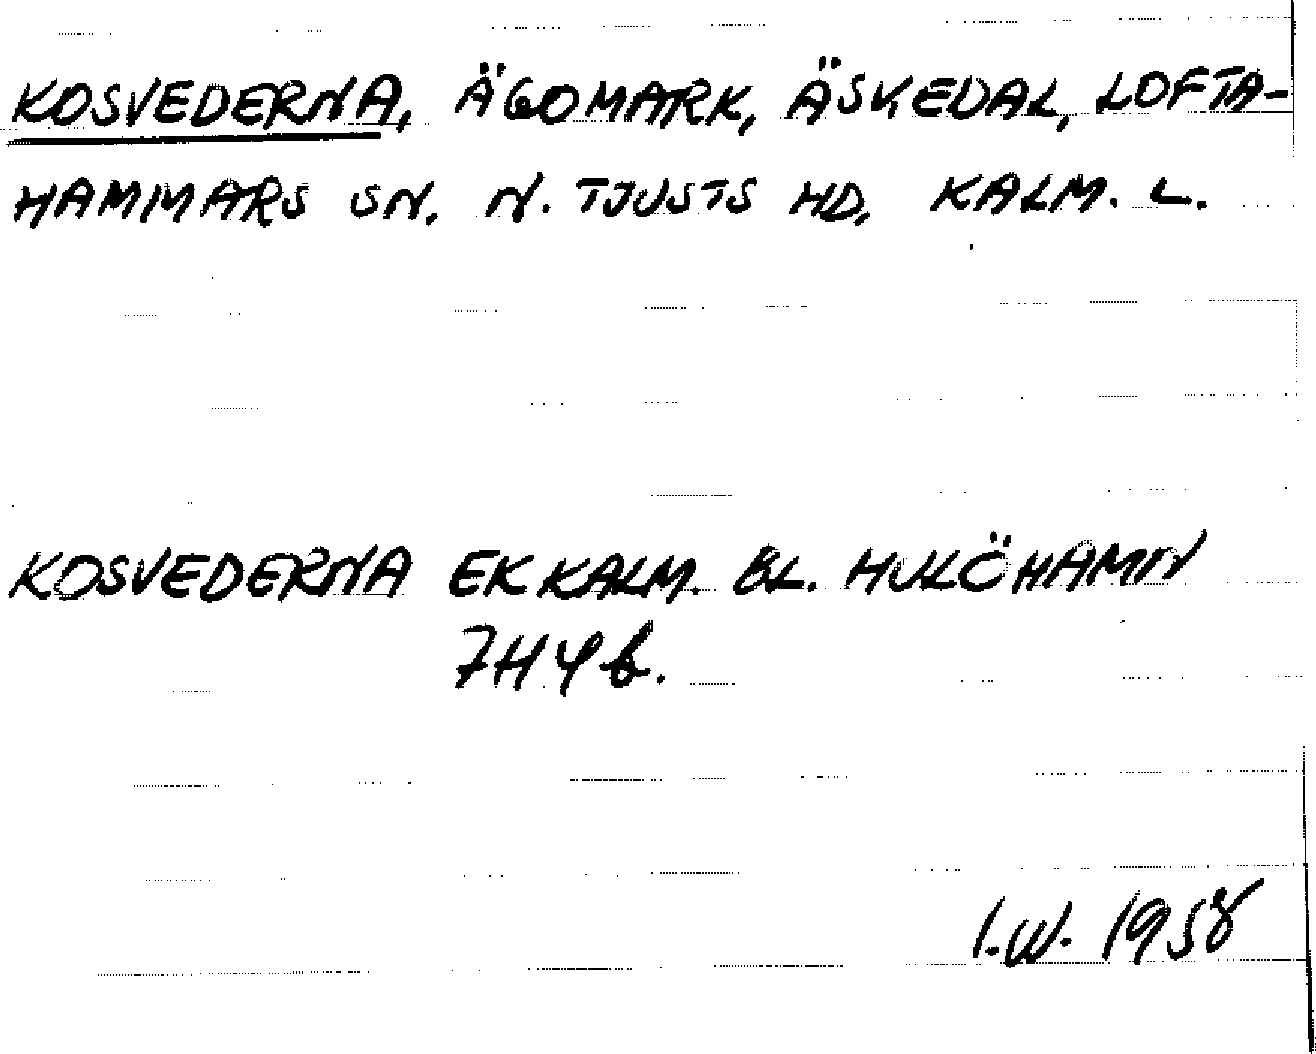 KOSVEDERNA, ÄGOMARK, ÄSKEDAL, LOFTA-
HAMMARS SN. N. TJUSTS HD. KALM. L.
KOSVEDERNA EKKALM. BL. HULÖHAMN
7H4b.
I.W. 1958